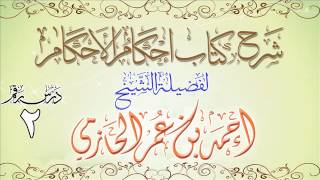 شرح كتاب إحكام الأحكام
لفضيلة الشيخ
أحمد بن عمر الحازمي
درس رقم
٢